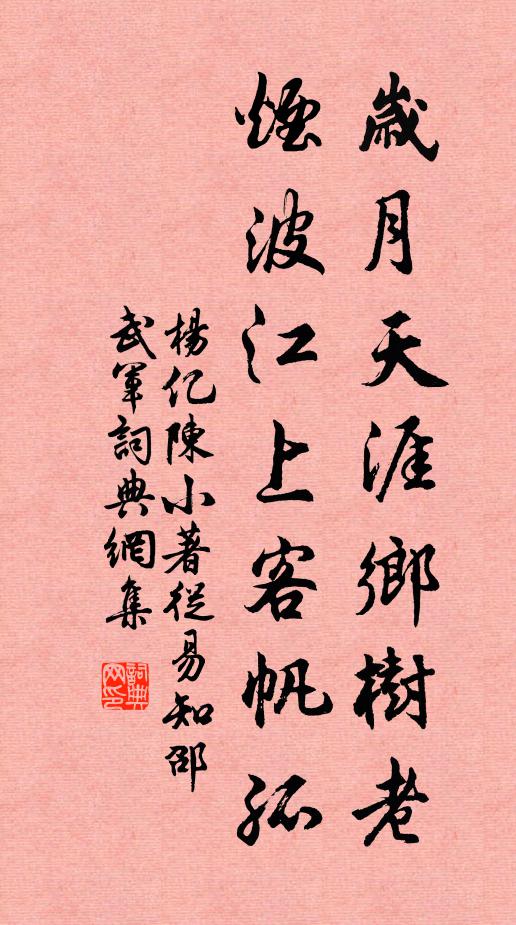 歲月天涯鄉樹老
煙波江上客帆孤
楊億陳小著從易知邵
武軍詞典網集
詞典網印